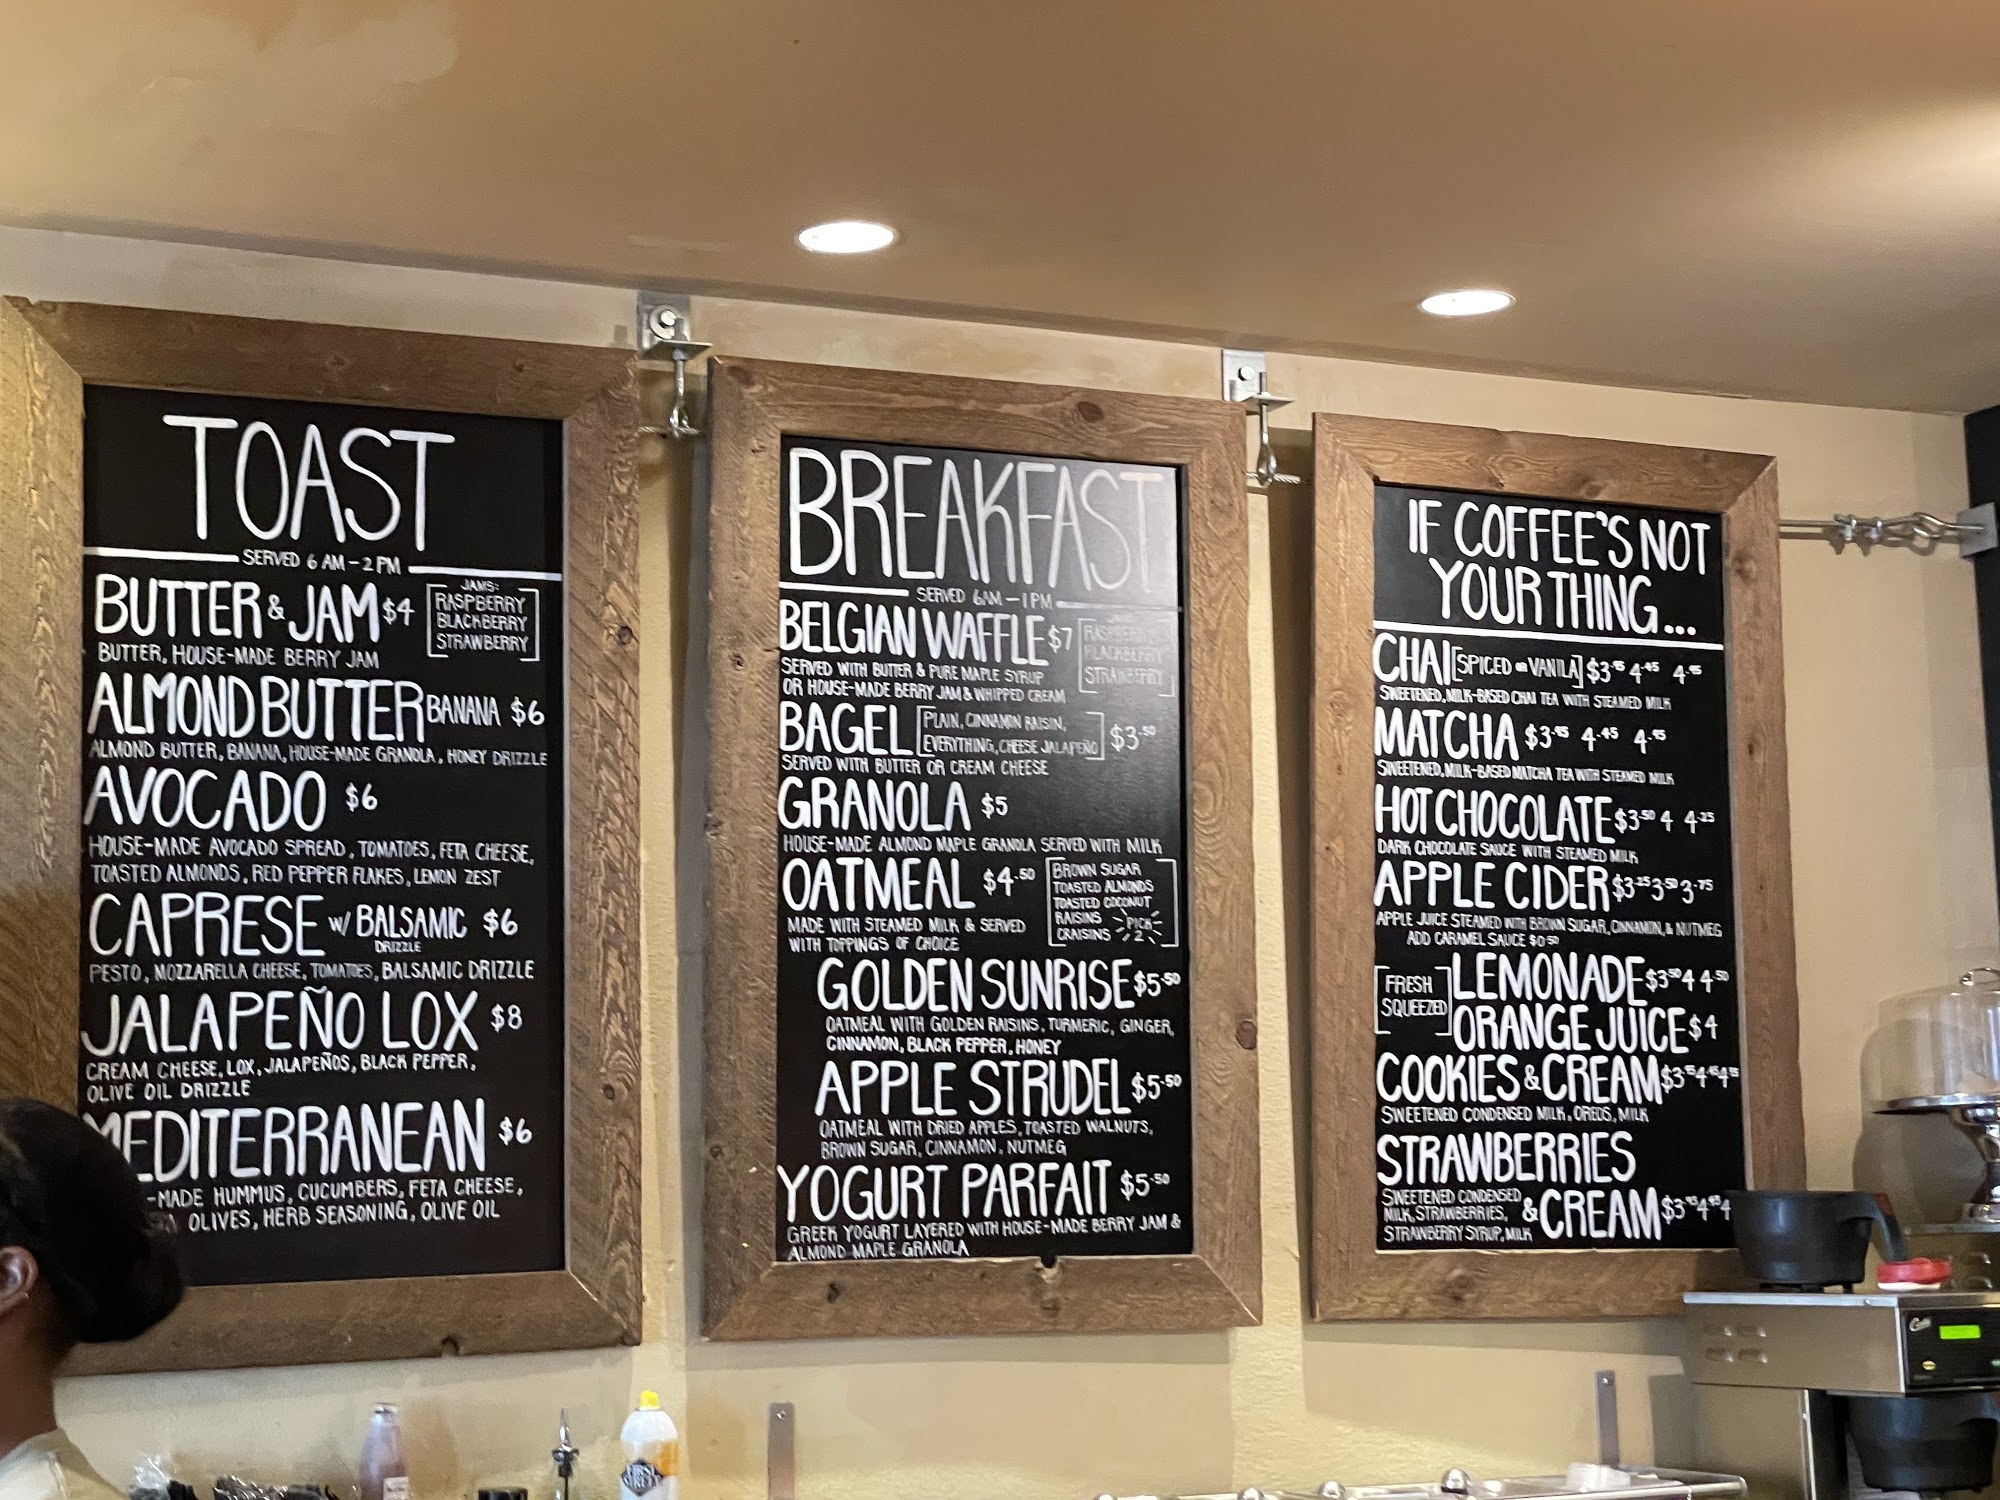 TOAST
SERVED 6 AM - 2 PM
BUTTER & JAM $4
JAMS:
RASPBERRY
BLACKBERRY
STRAWBERRY
BUTTER, HOUSE-MADE BERRY JAM
ALMOND BUTTER BANANA $6
ALMOND BUTTER, BANANA, HOUSE-MADE GRANOLA, HONEY DRIZZLE
AVOCADO $6
HOUSE-MADE AVOCADO SPREAD, TOMATOES, FETA CHEESE,
TOASTED ALMONDS, RED PEPPER FLAKES, LEMON ZEST
CAPRESE W/ BALSAMIC $6
DRIZZLE
PESTO, MOZZARELLA CHEESE, TOMATOES, BALSAMIC DRIZZLE
JALAPEÑO LOX $8
CREAM CHEESE, LOX, JALAPEÑOS, BLACK PEPPER,
OLIVE OIL DRIZZLE
MEDITERRANEAN $6
-MADE HUMMUS, CUCUMBERS, FETA CHEESE,
OLIVES, HERB SEASONING, OLIVE OIL
BREAKFAST
SERVED 6AM - 1PM
BELGIAN WAFFLE $7
JAMS:
RASPBERRY
BLACKBERRY
STRAWBERRY
SERVED WITH BUTTER & PURE MAPLE SYRUP
OR HOUSE-MADE BERRY JAM & WHIPPED CREAM
BAGEL [PLAIN, CINNAMIN RAISIN,
EVERYTHING, CHEESE JALAPEÑO] $3.50
SERVED WITH BUTTER OR CREAM CHEESE
GRANOLA $5
HOUSE-MADE ALMOND MAPLE GRANOLA SERVED WITH MILK
OATMEAL $4.50
BROWN SUGAR
TOASTED ALMONDS
TOASTED COCONUT
RAISINS
CRAISINS
PICK
2
MADE WITH STEAMED MILK & SERVED
WITH TOPPINGS OF CHOICE
GOLDEN SUNRISE $5.50
OATMEAL WITH GOLDEN RAISINS, TURMERIC, GINGER,
CINNAMON, BLACK PEPPER, HONEY
APPLE STRUDEL $5.50
OATMEAL WITH DRIED APPLES, TOASTED WALNUTS,
BROWN SUGAR, CINNAMON, NUTMEG
YOGURT PARFAIT $5.50
GREEK YOGURT LAYERED WITH HOUSE-MADE BERRY JAM &
ALMOND MAPLE GRANOLA
IF COFFEE'S NOT
YOUR THING...
CHAI [SPICED OR VANILA] $3.95 4.45 4.95
SWEETENED, MILK-BASED CHAI TEA WITH STEAMED MILK
MATCHA $3.95 4.45 4.95
SWEETENED, MILK-BASED MATCHA TEA WITH STEAMED MILK
HOT CHOCOLATE $3.50 4 4.25
DARK CHOCOLATE SAUCE WITH STEAMED MILK
APPLE CIDER $3.25 3.50 3.75
APPLE JUICE STEAMED WITH BROWN SUGAR, CINNAMON, & NUTMEG
ADD CARAMEL SAUCE $0.50
[FRESH
SQUEEZED]
LEMONADE $3.50 4 4.50
ORANGE JUICE $4
COOKIES & CREAM $3.95 4.45 4.95
SWEETENED CONDENSED MILK, OREOS, MILK
STRAWBERRIES
& CREAM $3.95 4.45 4
SWEETENED CONDENSED
MILK, STRAWBERRIES,
STRAWBERRY SYRUP, MILK
FIRST
STREET